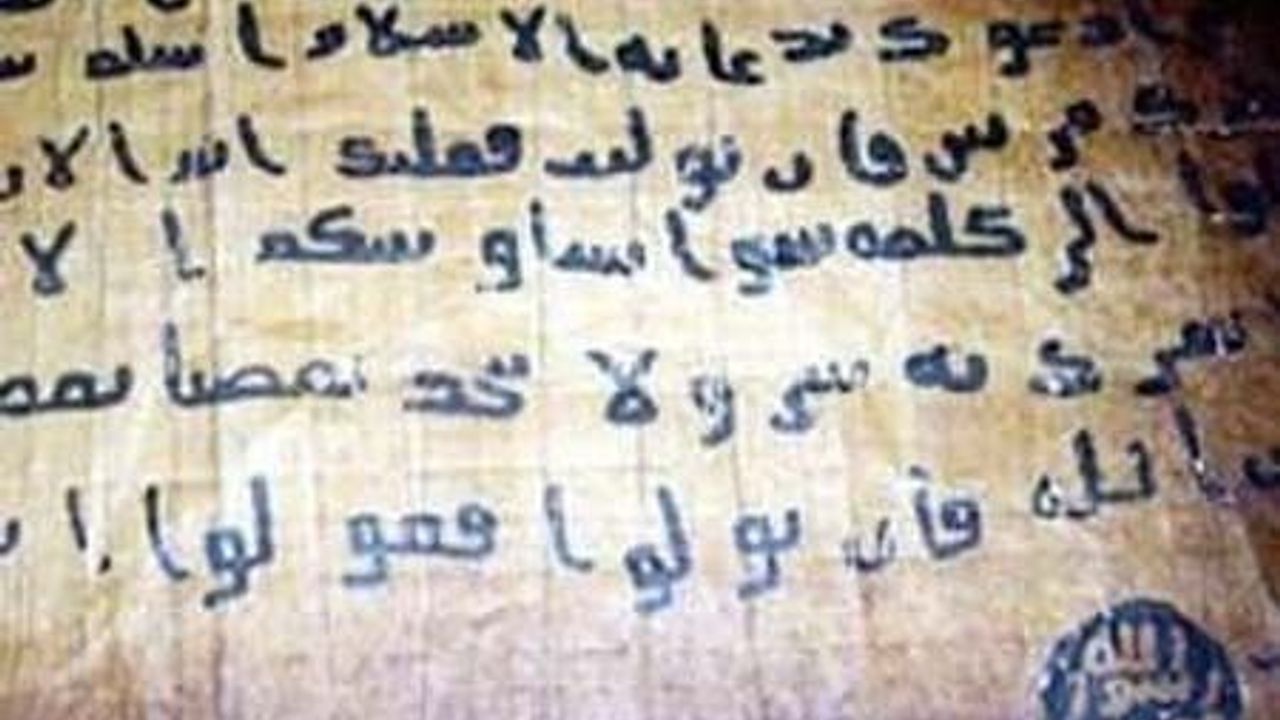 ادعوك بدعايه الاسلام اسلم
فان توليت فعليك اثم الا
لوا الى كلمه سوا بيننا و بينكم ا لا
نشرك به شي ولا يتخذ بعضنا بعض
الله فان تولوا فقولوا ا
الله
رسول